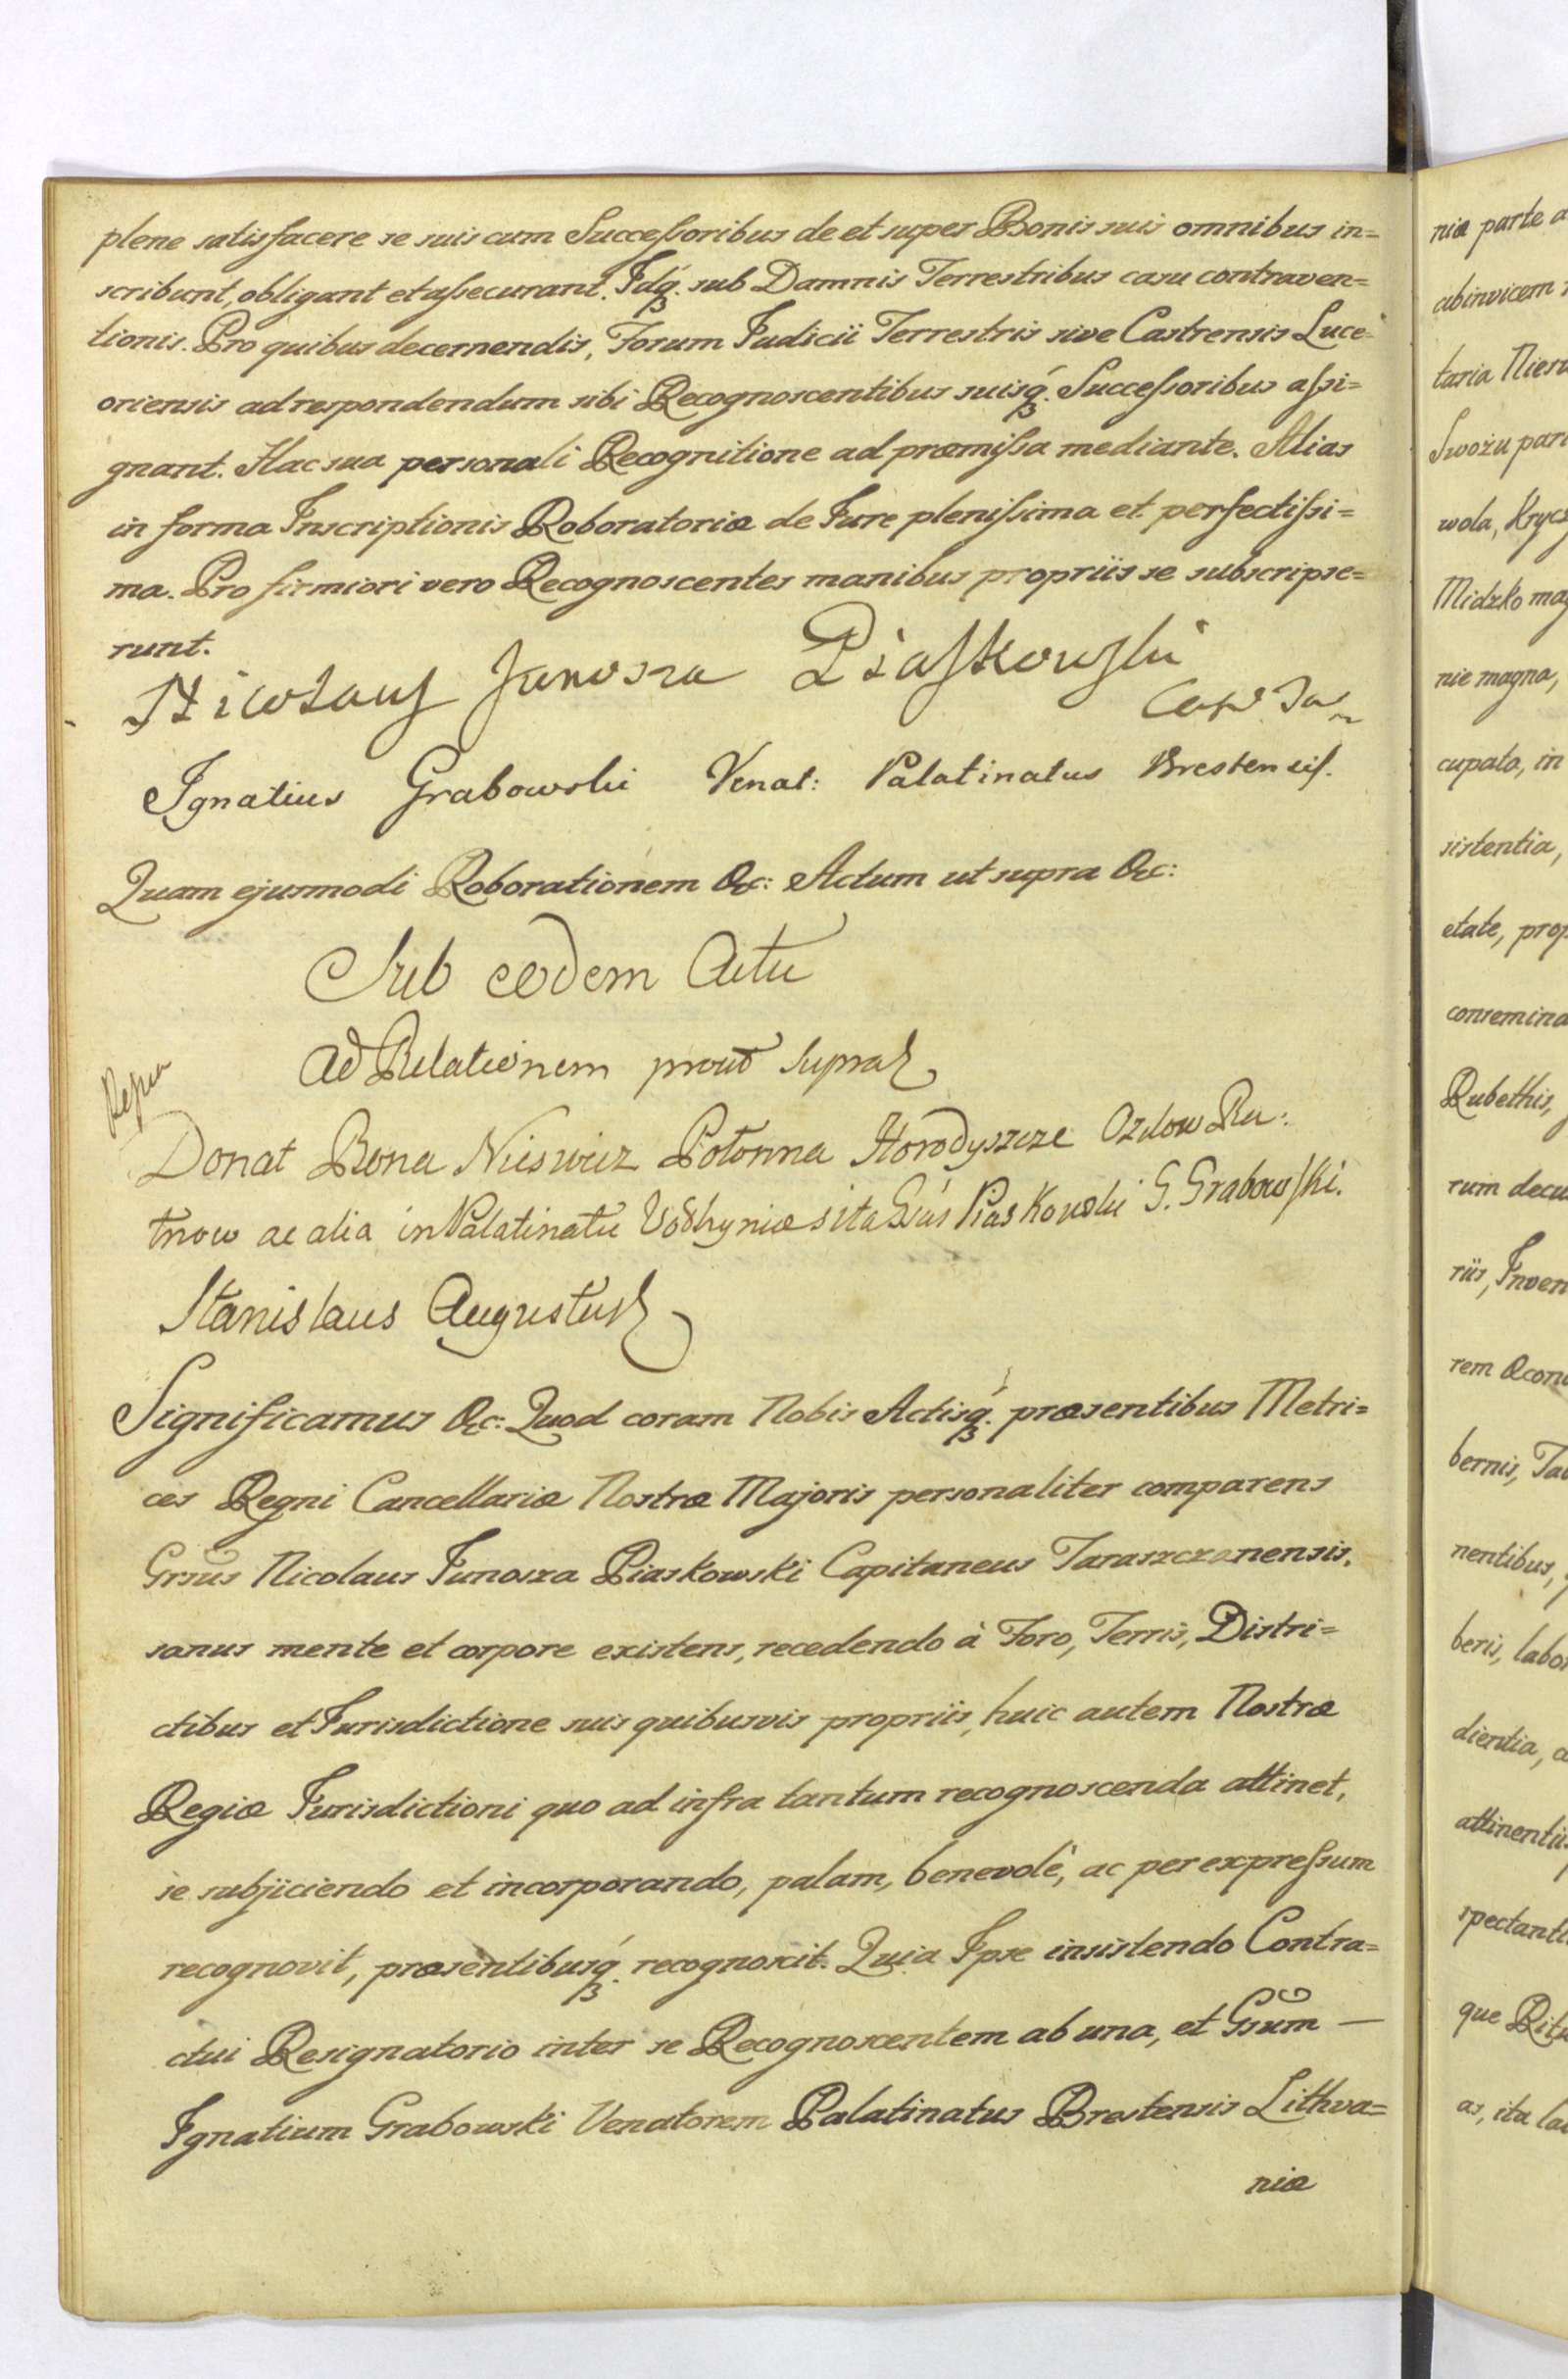 plene satisfacere se suis cum Successoribus de et super Bonis suis omnibus in=
scribunt, obligant et assecurant. Idq́ꝫ. sub Damnis Terrestribus casu contraven=
tionis. Pro quibus decernendis, Forum Judicii Terrestris sive Castrensis Luce=
oriensis ad respondendum sibi Recognoscentibus suisq́ꝫ. Successoribus assi=
gnant. Hac sua personali Recognitione ad præmissa mediante. Alias
in forma Inscriptionis Roboratoriæ de Jure plenissima et perfectissi=
ma. Pro firmiori vero Recognoscentes manibus propriis se subscripse=
runt.
Nicolaus Junosza Piaskowski
Cap
Ignatius Grabowski Venat: Palatinatus Brestensis.
Quam ejusmodi Roborationem &c: Actum ut supra &c:
Sub eodem Actu
Ad Relationem prout supra
Donat Bona Nieswicz Połonna Horodyszcze Ozdow Ru:
tnow ac alia in Palatinatu Volhyniæ sita Gsús Piaskowski G. Grabowski.
Stanislaus Augustus
Significamus &c: Quod coram Nobis Actisq́ꝫ. præsentibus Metri=
ces Regni Cancellariæ Nostræ Majoris personaliter comparens
Grsus Nicolaus Junosza Piaskowski Capitaneus Taraszczanensis,
sanus mente et corpore existens, recedendo à Foro, Terris, Distri=
ctibus et Jurisdictione suis quibusvis propriis, huic autem Nostræ
Regiæ Jurisdictioni quo ad infra tantum recognoscenda attinet,
se subjiciendo et incorporando, palam, benevolè, ac per expressum
recognovit, præsentibusq́ꝫ. recognoscit. Quia Ipse insistendo Contra=
ctui Resignatorio inter se Recognoscentem ab una, et Gsum —
Ignatium Grabowski Venatorem Palatinatus Brestensis Lithva=
niæ
niæ parte a
abinvicem
taria
Swozu par
wola,
Midzko mag
nie magna,
cupato, in
sistentia,
etate, prop
consemina
Rubethis,
rum decu
riis, Inven
rem Œcon
bernis, Ta
nentibus,
beris, labo
dientia, a
attinentii
spectanti
que
as, ita la